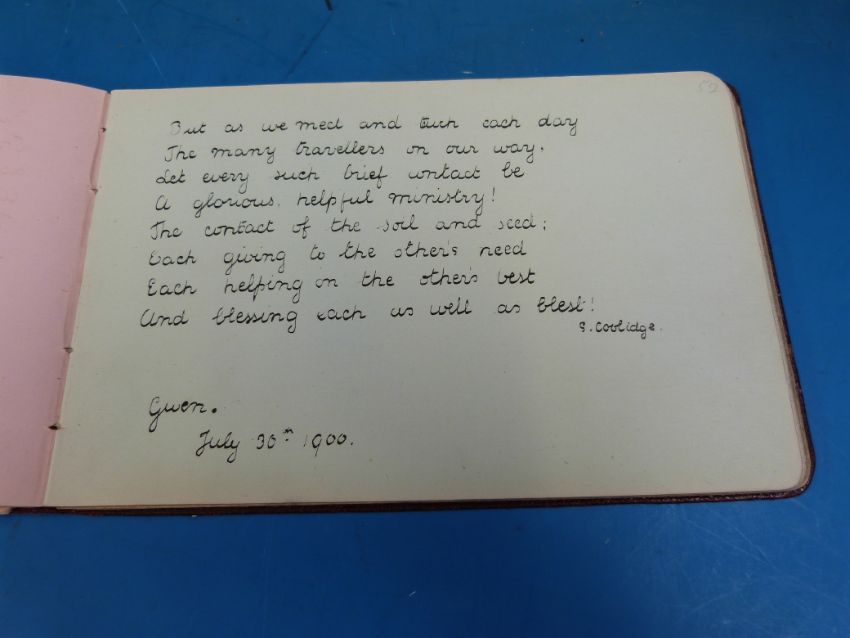 52
But as we meet and tuch each day
The many travellers on our way.
Let every such brief contact be
A glorious, helpful ministry!
The contact of the soil and seed;
Each giving to the other's need
Each helping on the other's best
And blessing each as well as blest!
S. Coolidge.
Gwen.
July 30th 1900.